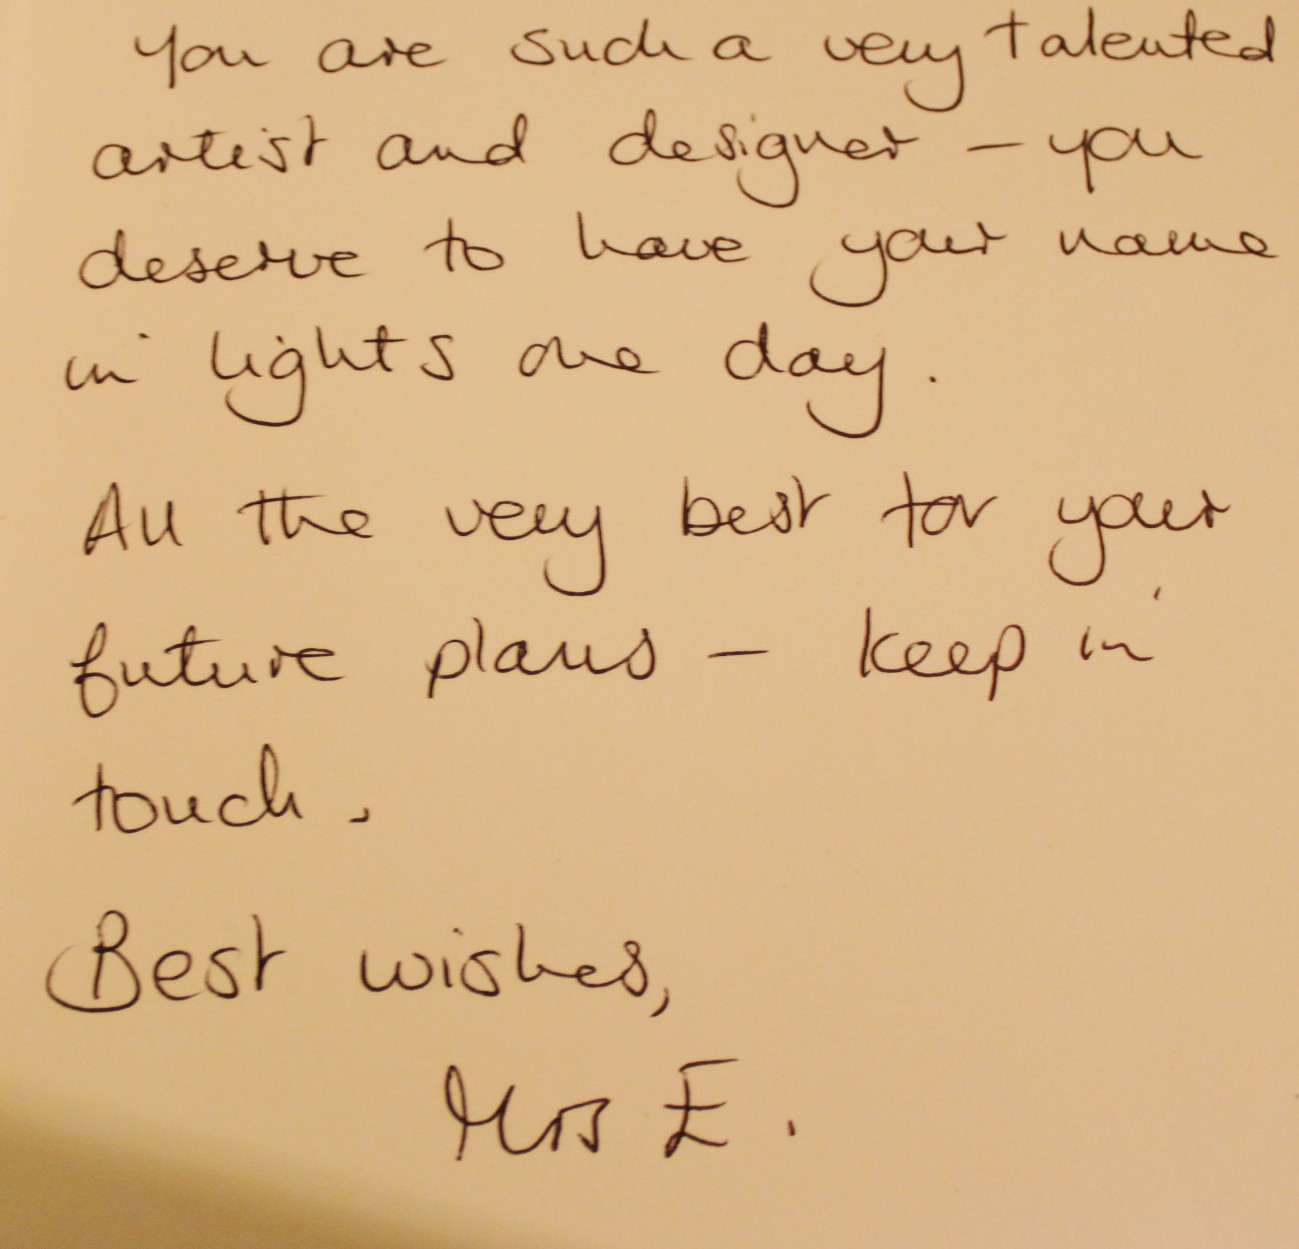 You are such a very talented
artist and designer – you
deserve to have your name
in lights one day.
All the very best for your
future plans – keep in
touch.
Best wishes,
Mrs E.